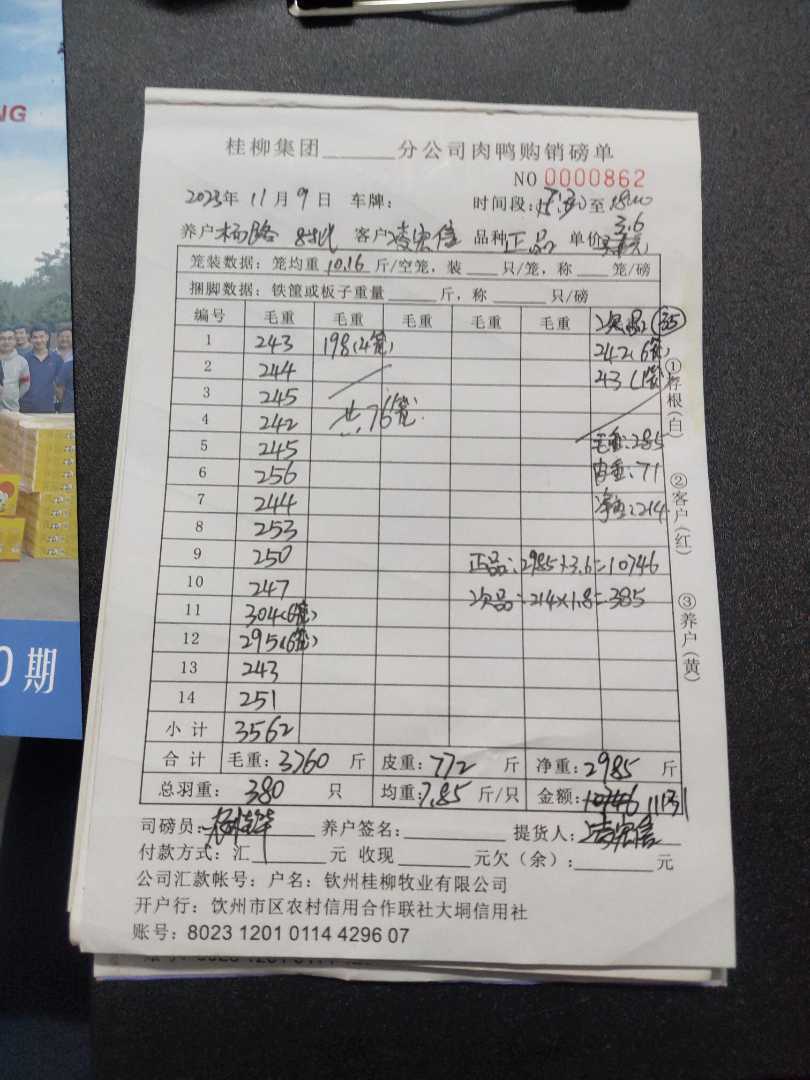 NG
0期
桂柳集团______分公司肉鸭购销磅单
NO 0000862
2023年 11月 9日 车牌: 时间段: 至 18:00
养户 杨路 客户 凌宏信 品种 正品 单价 3.6
笼装数据: 笼均重 10.16 斤/空笼, 装___只/笼, 称___笼/磅
捆脚数据: 铁筐或板子重量_____斤, 称_____只/磅
编号 毛重 毛重 毛重 毛重 毛重 次品: 35
1 243 198(4笼) 242(6笼)
2 244 43(1笼)
3 245
4 242 共76笼
5 245 毛重:285
6 256 皮重:71
7 244 净重:214
8 253
9 250 正品:2985×3.6=10746
10 247 次品:214×1.8=385
11 304(6笼)
12 295(6笼)
13 243
14 251
小计 3562
合计 毛重: 3760 斤 皮重: 772 斤 净重: 2985 斤
总羽重: 380 只 均重: 7.85 斤/只 金额: 10746 11131
司磅员: 养户签名: 提货人: 凌宏信
付款方式: 汇______元 收现______元欠(余): ______元
公司汇款帐号: 户名: 钦州桂柳牧业有限公司
开户行: 钦州市区农村信用合作联社大垌信用社
账号: 8023 1201 0114 4296 07
①存根(白)
②客户(红)
③养户(黄)